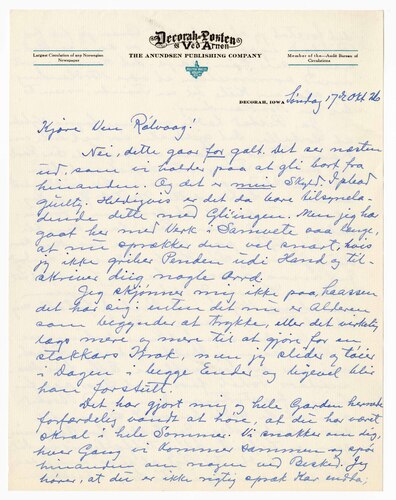 Decorah-Posten
og Ved Arnen
Largest Circulation of any Norwegian
Newspaper
THE ANUNDSEN PUBLISHING COMPANY
Member of the—Audit Bureau of
Circulations
DECORAH, IOWA Søndag 17de Okt 26
Kjære Ven Rölvaag!
Nei, dette gaar for galt. Det ser næsten
ud, som vi holder paa at gli bort fra
hinanden. Og det er min Skyld. I plead
guilty. Heldigvis er det da bare tilsynela-
dende dette med Glidningen. Men jeg har
gaat her med Værk i Samvete saa længe,
at nu sprækker den vel snart, hvis
jeg ikke griber Penden udi Haand og til-
skriver dig nogle Ord.
Jeg skjønner mig ikke paa, haassen
det har sig: enten det nu er Alderen
som begynder at trykke, eller det virkelig
mere og mere til at gjøre for en
stakkars Krok, men jeg slider og tøier
i Dagen i begge Ender og ligevel blir
han forstutt.
Det har gjort mig og hele Garden
forfærdelig vondt at høre, at du har vært
skral i hele Sommer. Vi snakker om dig,
hver Gang vi kommer sammen og spør
hinanden om nogen ved Besked. Jeg
hører, at du er ikke rigtig spræk